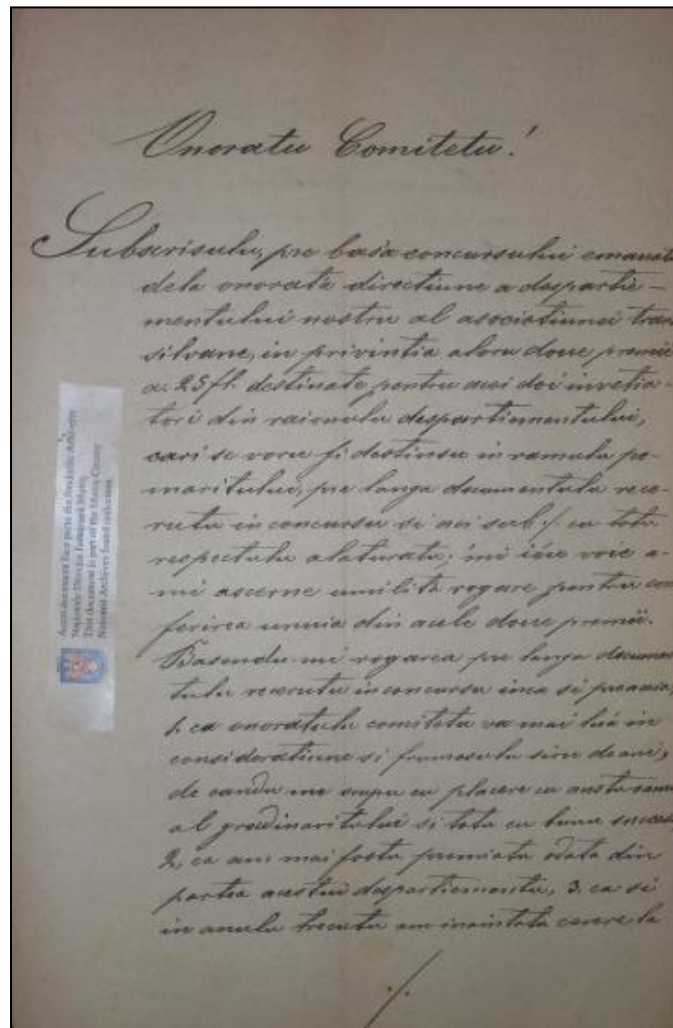 Onoratu Comitetu!
Subscrisulu, pre basa concursului emanatu
dela onorata directiune a despartie-
mentului nostru al asociatiunei tran
silvane, in privintia aloru doue premie
a. 25 fl. destinate pentru acei doi invetia-
tori din raionulu despartimentului,
cari se voru fi destinsu in ramulu po-
maritului, pre langa documentulu rece-
rutu in concursu si aci sub ·/. cu totu
respectulu alaturatu; imi ieu voie a-
mi ascerne umilita rogare pentru con
ferirea unuia din acele doue premii.
Basandu-mi rogarea pre langa documen
tulu recerutu in concursu inca si pre
1. ca onoratulu comitetu va mai luá in
consideratiune si frumosulu siru de ani,
de candu me ocupu cu placere cu acestu ramu
al gradinaritului si totu cu bunu succesu,
2, ca am mai fostu premiatu odata din
partea acestui despartiementu, 3. ca si
in anulu trecutu am inaintatu cerere la
·/.
Acest document face parte din fondurile Arhivelor
Naţionale Direcţia Judeţeană Mureş.
This document is part of the Mureş County
National Archives found collections.